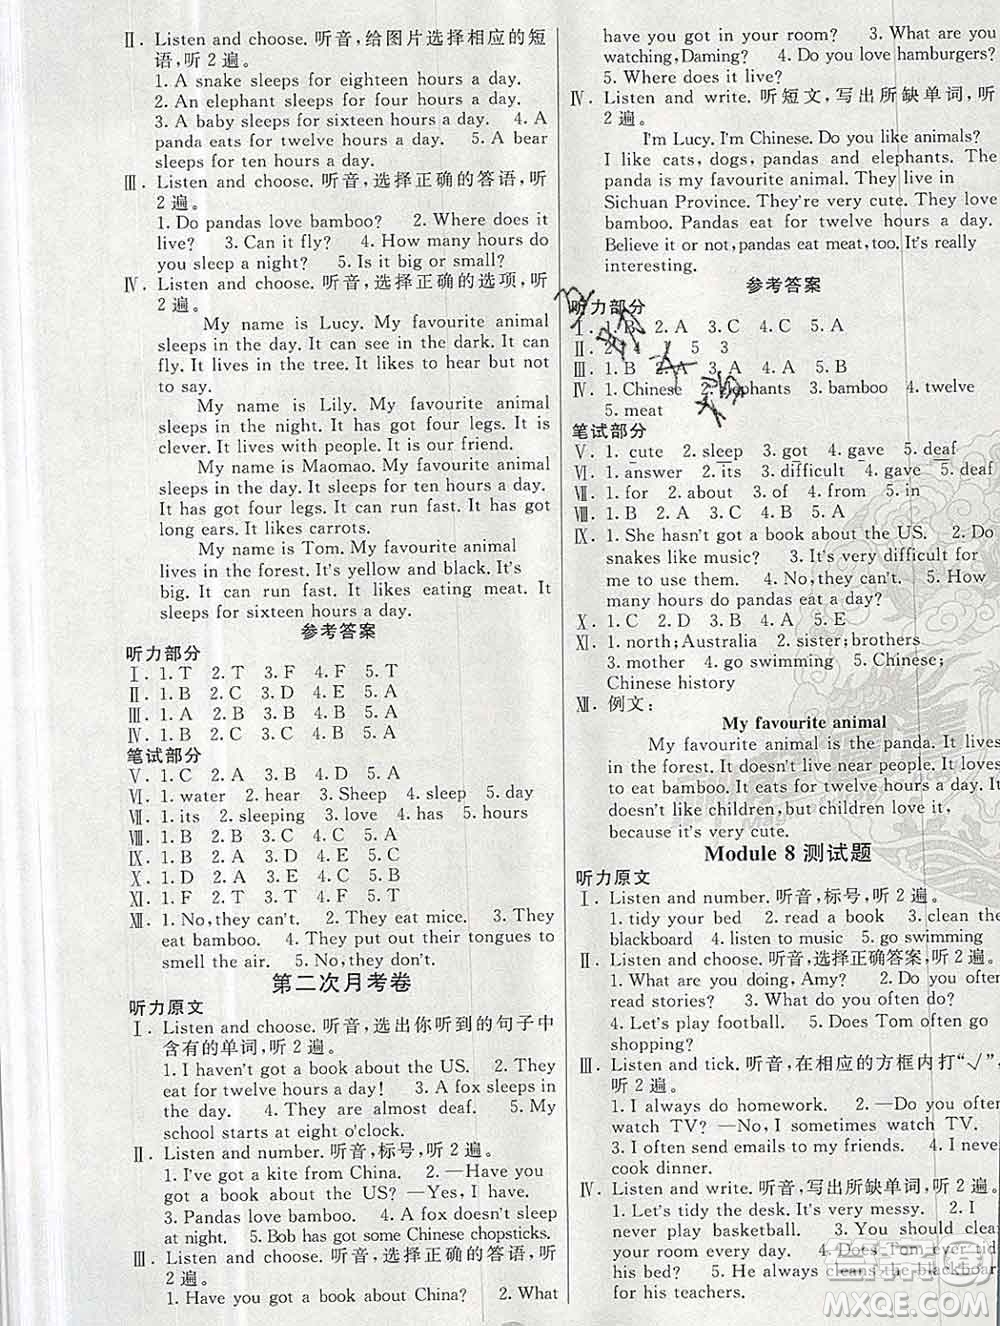 Ⅱ. Listen and choose. 听音,给图片选择相应的短
语,听 2 遍。
1. A snake sleeps for eighteen hours a day.
2. An elephant sleeps for four hours a day.
3. A baby sleeps for sixteen hours a day. 4. A
panda eats for twelve hours a day. 5. A bear
sleeps for ten hours a day.
Ⅲ. Listen and choose. 听音,选择正确的答语,听
2 遍。
1. Do pandas love bamboo? 2. Where does it
live? 3. Can it fly? 4. How many hours do
you sleep a night? 5. Is it big or small?
Ⅳ. Listen and choose. 听音,选择正确的选项,听
2 遍。
My name is Lucy. My favourite animal
sleeps in the day. It can see in the dark. It can
fly. It lives in the tree. It likes to hear but not
to say.
My name is Lily. My favourite animal
sleeps in the day. It has got four legs. It is
clever. It lives with people. It is our friend.
My name is Maomao. My favourite animal
sleeps in the day. It sleeps for ten hours a day.
It has got four legs. It can run fast. It has got
long ears. It likes carrots.
My name is Tom. My favourite animal
lives in the forest. It's yellow and black. It's
big. It can run fast. It likes eating meat. It
sleeps for sixteen hours a day.
参考答案
听力部分
Ⅰ. 1. T 2. T 3. F 4. F 5. T
Ⅱ. 1. B 2. C 3. D 4. E 5. A
Ⅲ. 1. A 2. B 3. B 4. B 5. A
Ⅳ. 1. B 2. C 3. D 4. A
笔试部分
Ⅴ. 1. C 2. A 3. B 4. D 5. A
Ⅵ. 1. water 2. hear 3. Sheep 4. sleep
Ⅶ. 1. its 2. sleeping 3. love 4. has 5. hours
Ⅷ. 1. B 2. B 3. C 4. A 5. A
Ⅸ. 1. B 2. A 3. C 4. A 5. B
Ⅹ. 1. C 2. D 3. E 4. B 5. A
Ⅺ. 1. F 2. T 3. F 4. T 5. F
Ⅻ. 1. No, they can't. 2. They eat mice. 3. They
eat bamboo. 4. They put out their tongues to
smell the air. 5. No, they don't.
第二次月考卷
听力原文
Ⅰ. Listen and choose. 听音,选出你听到的句子中
含有的单词,听 2 遍。
1. I haven't got a book about the US. 2. They
eat for twelve hours a day! 3. A fox sleeps in
the day. 4. They are almost deaf. 5. My
school starts at eight o'clock.
Ⅱ. Listen and number. 听音,标号,听 2 遍。
1. I've got a kite from China. 2. —Have you
got a book about the US? —Yes, I have.
3. Pandas love bamboo. 4. A fox doesn't sleep
at night. 5. Bob has got some Chinese chopsticks.
Ⅲ. Listen and choose. 听音,选择正确的答语,听
2 遍。
1. Have you got a book about China? 2. What
have you got in your room? 3. What are you
watching, Daming? 4. Do you love hamburgers?
5. Where does it live?
Ⅳ. Listen and write. 听短文,写出所缺单词,听
2 遍。
I'm Lucy. I'm Chinese. Do you like animals?
I like cats, dogs, pandas and elephants. The
panda is my favourite animal. They live in
Sichuan Province. They're very cute. They love
bamboo. Pandas eat for twelve hours a day.
Believe it or not, pandas eat meat, too. It's really
interesting.
参考答案
听力部分
Ⅰ. 1. B 2. A 3. C 4. C 5. A
Ⅱ. 2 4 1 5 3
Ⅲ. 1. B 2. A 3. A 4. A 5. B
Ⅳ. 1. Chinese 2. elephants 3. bamboo 4. twelve
5. meat
笔试部分
Ⅴ. 1. cute 2. sleep 3. got 4. gave 5. deaf
Ⅵ. 1. answer 2. its 3. difficult 4. gave 5. deaf
Ⅶ. 1. for 2. about 3. of 4. from 5. in
Ⅷ. 1. A 2. A 3. B 4. B 5. A
Ⅸ. 1. She hasn't got a book about the US. 2. Do
snakes like music? 3. It's very difficult for
me to use them. 4. No, they can't. 5. How
many hours do pandas eat a day?
Ⅹ. 1. C 2. D 3. E 4. B 5. A
Ⅺ. 1. north; Australia 2. sister; brothers
3. mother 4. go swimming 5. Chinese;
Chinese history
Ⅻ. 例文:
My favourite animal
My favourite animal is the panda. It lives
in the forest. It doesn't live near people. It loves
to eat bamboo. It eats for twelve hours a day. It
doesn't like children, but children love it,
because it's very cute.
Module 8 测试题
听力原文
Ⅰ. Listen and number. 听音,标号,听 2 遍。
1. tidy your bed 2. read a book 3. clean the
blackboard 4. listen to music 5. go swimming
Ⅱ. Listen and choose. 听音,选择正确答案,听 2 遍。
1. What are you doing, Amy? 2. Do you often
read stories? 3. What do you often do?
4. Let's play football. 5. Does Tom often go
shopping?
Ⅲ. Listen and tick. 听音,在相应的方框内打“√”,
听 2 遍。
1. I always do homework. 2. —Do you often
watch TV? —No, I sometimes watch TV.
3. I often send emails to my friends. 4. I never
cook dinner.
Ⅳ. Listen and write. 听音,写出所缺单词,听 2 遍。
1. Let's tidy the desk. It's very messy. 2. I
never play basketball. 3. You should clean
your room every day. 4. Does Tom ever tidy
his bed? 5. He always cleans the blackboard
for his teachers.
MXQE.COM